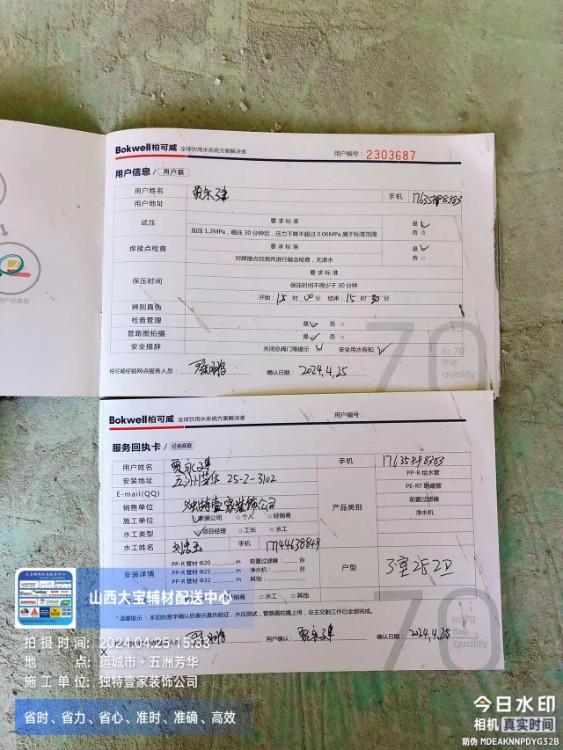 Bokwell柏可威 全球饮用水系统方案解决者 用户编号: 2303687
用户信息 / 用户联
用户姓名 手机
用户地址
试压 要求标准 是 否
加压1.2MPa，稳压30分钟后，压力下降不超过0.06MPa属于标准范围
焊接点检查 要求标准 是 否
对焊接点目测并进行敲击检查，无渗水
保压时间 要求标准
保压时间不得少于30分钟
开始 15 时 00 分 结束 15 时 30 分
辨别真伪
检查管理 是 否
管路图拍摄 是 否
安全措辞 关闭总阀门等提示 安全用水告知
柏可威经销网点服务人员: 确认日期: 2024.4.25
70
In 70
the
quality
Bokwell柏可威 全球饮用水系统方案解决者 用户编号:
服务回执卡 / 经销商联
用户姓名 手机
安装地址 五洲芳华 25-2-3102
E-mail(QQ)
销售单位 独特壹家装饰公司
施工单位 家装公司 个人 经销商
水工类型 项目经理 工长 水工
水工姓名 手机 17744638849
产品类别
PP-R 给水管
PE-RT 地暖管
前置过滤器
净水机
安装详情
PP-R 管材 Φ20 m 前置过滤器: 台
PP-R 管材 Φ25 m 净水机: 台
PP-R 管材 Φ32 m 其他:
户型 3室2厅2卫
水工 其他
用户确认: 确认日期: 2024.4.25
70
In 70
the
quality
山西大宝辅材配送中心
拍摄时间: 2024-04-25 15:33
地点: 运城市·五洲芳华
施工单位: 独特壹家装饰公司
省时、省力、省心、准时、准确、高效
今日水印
相机 真实时间
防伪 MDEAKNNPDYG32B